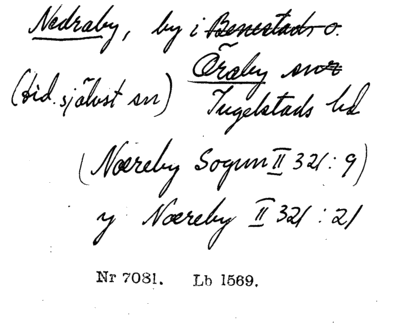 Nedraby, by i Benestads o.
Öraby snr
(tid. självst sn) Ingelstads hd
(Næreby Sogun II 321: 9)
y Næreby II 321 : 21
Nr 7081. Lb 1569.